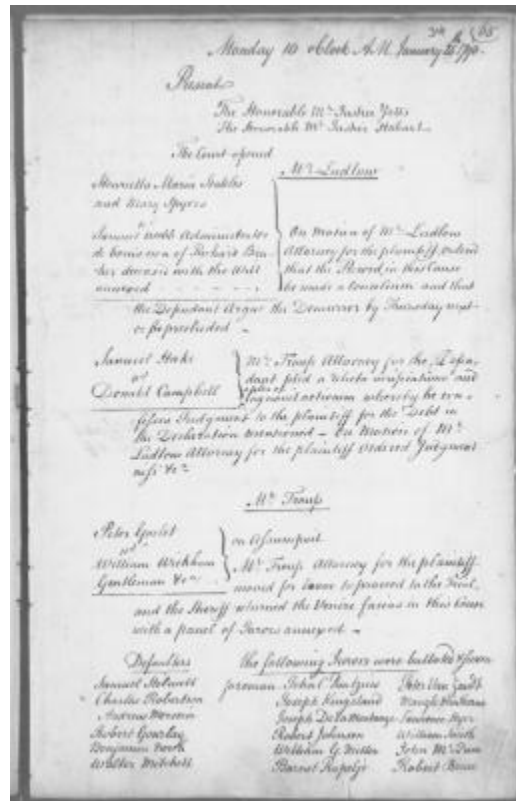 65
Monday 10 oClock A.M. January 25th 1790.
Present
The Honorable Mr Justice Yates
The Honorable Mr Justice Hobart
The Court opened
Mr Ludlow
Henrietta Maria
and Mary Spyres
vs
Samuel Administrator
de bonis non of Richard
deceased with the Will
annexed
On Motion of Mr Ludlow
Attorney for the plaintiff, ordered
that the Record in this Cause
be made a Concilium and that
the Defendant Argue the Demurrer by Thursday next
or be precluded
Samuel Hake
vs
Donald Campbell
Mr Troup Attorney for the Defen
dant pled a relicta verificatione and
cognovit actionem whereby he con
fesses Judgment to the plaintiff for the Debt in
the Declaration mentioned – On Motion of Mr
Ludlow Attorney for the plaintiff Ordered Judgment
nisi &c
Mr Troup
Peter
vs
William Wickham
Gentleman &c
on Assumpsit
Mr Troup Attorney for the plaintiff
moved for leave to proceed to the Trial,
and the Sheriff returned the Venire facias in this Cause
with a panel of Jurors annexed –
Defaulters
The following Jurors were ballotted & sworn
Samuel
Charles Robertson
Andrew
Robert Gourlay
Benjamin
Walter Mitchell
foreman John
Joseph Kingsland
Joseph De la Montagne
Robert Johnson
William G. Miller
Barnet Rapelje
Peter Van Zandt
Lawrence
William Smith
John
Robert